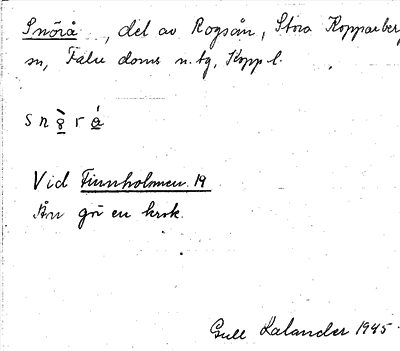 Snörå, del av Rogsån, Stora Kopparberg
sn, Falu doms n. tg, Kopp l.
snö̀rǻ
Vid Finnholmen. 19
Ån gör en krok.
Gull Lalander 1945.